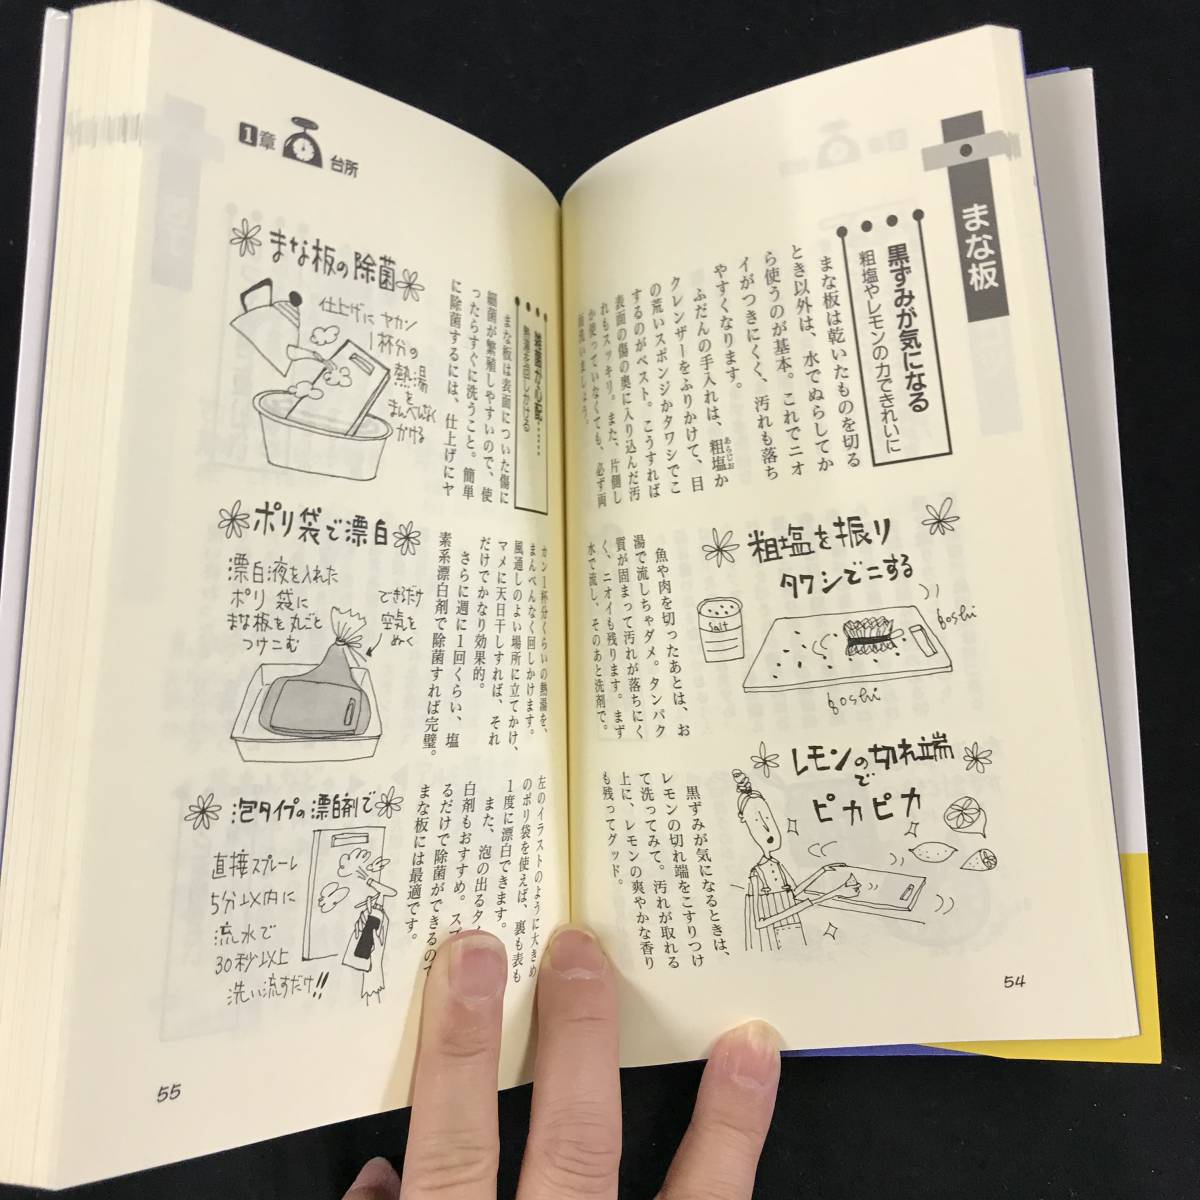 まな板
黒ずみが気になる
粗塩やレモンの力できれいに
まな板は乾いたものを切る
とき以外は、水でぬらしてか
ら使うのが基本。これでニオ
イがつきにくく、汚れも落ち
やすくなります。
ふだんの手入れは、粗塩か
あらじお
クレンザーをふりかけて、目
の荒いスポンジかタワシでこ
するのがベスト。こうすれば
表面の傷の奥に入り込んだ汚
れもスッキリ。また、片側し
か使っていなくても、必ず両
面洗いましょう。
粗塩を振り
タワシでこする
Salt
goshi
goshi
魚や肉を切ったあとは、お
湯で流しちゃダメ。タンパク
質が固まって汚れが落ちにく
く、ニオイも残ります。まず
水で流し、そのあと洗剤で。
レモンの切れ端
で
ピカピカ
黒ずみが気になるときは、
レモンの切れ端をこすりつけ
て洗ってみて。汚れが取れる
上に、レモンの爽やかな香り
も残ってグッド。
54
1章
台所
雑菌が心配……
熱湯を回しかける
まな板は表面についた傷に
細菌が繁殖しやすいので、使
ったらすぐに洗うこと。簡単
に除菌するには、仕上げにヤ
カン1杯分くらいの熱湯を、
まんべんなく回しかけます。
風通しのよい場所に立てかけ、
マメに天日干しすれば、それ
だけでかなり効果的。
さらに週に1回くらい、塩
素系漂白剤で除菌すれば完璧。
左のイラストのように大きめ
のポリ袋を使えば、裏も表も
1度に漂白できます。
また、泡の出るタイ
白剤もおすすめ。スプ
るだけで除菌ができるので
まな板には最適です。
まな板の除菌
仕上げにヤカン
1杯分の
熱湯
を
まんべんなく
かける
ポリ袋で漂白
漂白液を入れた
ポリ袋に
まな板を丸ごと
つけこむ
できるだけ
空気を
ぬく
泡タイプの漂白剤で
直接スプレーし
5分以内に
流水で
30秒以上
洗い流すだけ!!
55